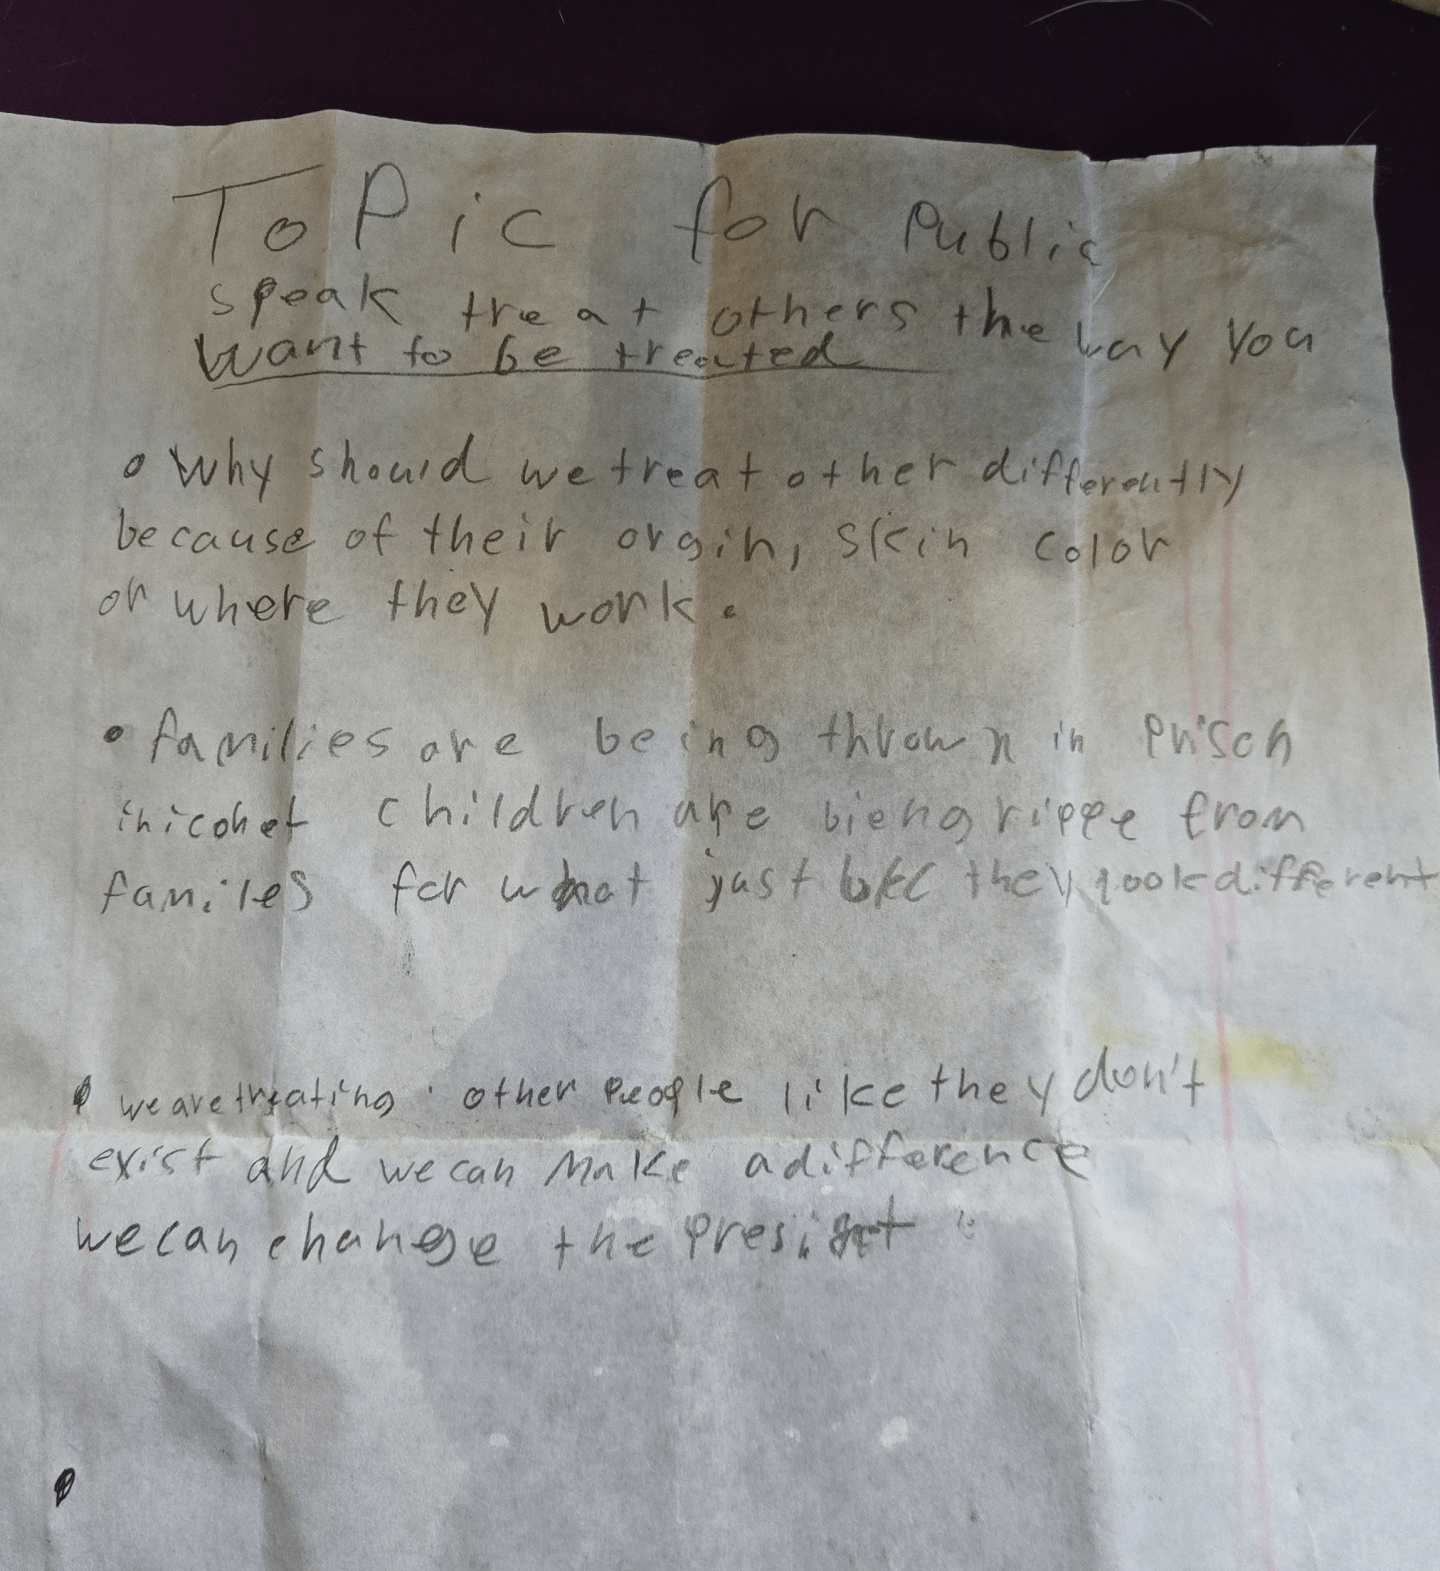 ToPic for Public
speak treat others the way you
want to be treated
• Why should we treat other differently
because of their orgin, skin color
or where they work.
• families are being thrown in prison
iniconet children are bieng rippe from
familes for what just bec they look different
• we are treating other people like they don't
exist and we can make a difference
we can change the
•